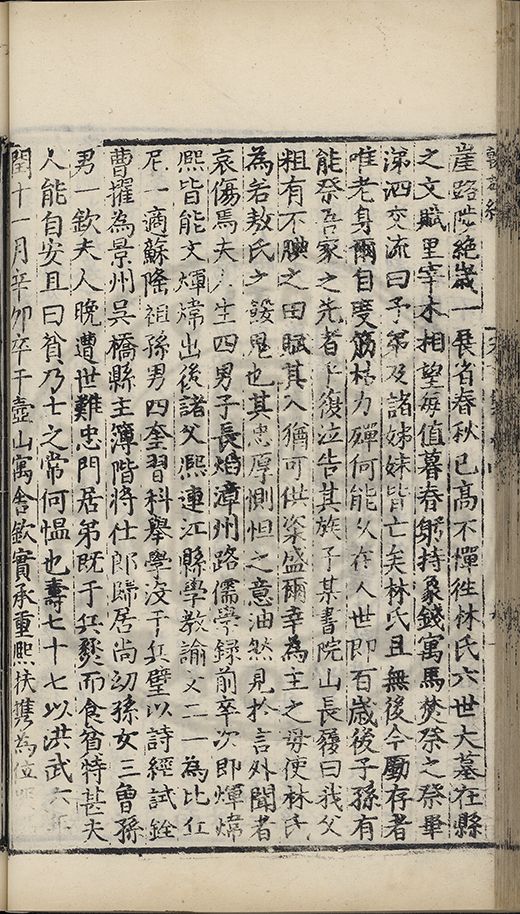 崖路陡絶歲一展省春秋已髙不憚徃林氏六世大墓在縣
之文賦里宰木相望每值暮春躬持象錢寓馬焚祭之祭畢
涕泗交流曰予弟及諸姊妹皆亡矣林氏且無後今勵存者
唯老身爾自度筋格力殫何能久在人世即百歲後子孫有
能祭吾家之先者乎復泣告其族子某書院山長獲曰我父
粗有不腆之田賦其入猶可供粢盛爾幸為主之毋使林氏
為若敖氏之餒鬼也其忠厚惻怛之意油然見於言外聞者
哀傷焉夫人生四男子長焰漳州路儒學録前卒次即煇煒
熈皆能文煇煒出後諸父熈連江縣學教諭父二一為比丘
尼一適蘇隆祖孫男四奎習科舉學沒于兵璧以詩經試銓
曹擢為景州吳橋縣主簿階將仕郎歸居尚㓜孫女三曾孫
男一欽夫人晚遭世難忠門居第既于兵燹而食貧特甚夫
人能自安且曰貧乃士之常何愠也壽七十七以洪武六年
閏十一月辛卯卒于壺山寓舍欽實承重熈扶携為位